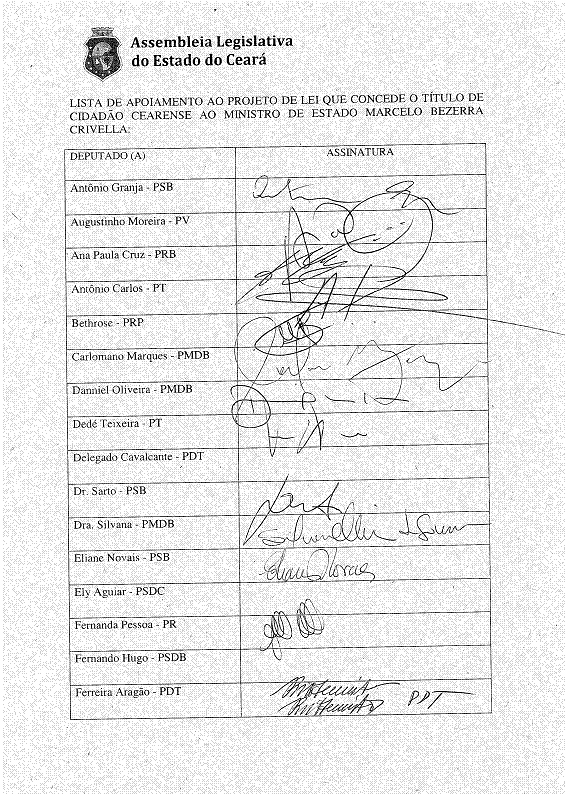 Assembleia Legislativa
do Estado do Ceará
LISTA DE APOIAMENTO AO PROJETO DE LEI QUE CONCEDE O TÍTULO DE
CIDADÃO CEARENSE AO MINISTRO DE ESTADO MARCELO BEZERRA
CRIVELLA:
DEPUTADO (A) ASSINATURA
Antônio Granja - PSB
Augustinho Moreira - PV
Ana Paula Cruz - PRB
Antônio Carlos - PT
Bethrose - PRP
Carlomano Marques - PMDB
Danniel Oliveira - PMDB
Dedé Teixeira - PT
Delegado Cavalcante - PDT
Dr. Sarto - PSB
Dra. Silvana - PMDB
Eliane Novais - PSB
Ely Aguiar - PSDC
Fernanda Pessoa - PR
Fernando Hugo - PSDB
Ferreira Aragão - PDT PDT